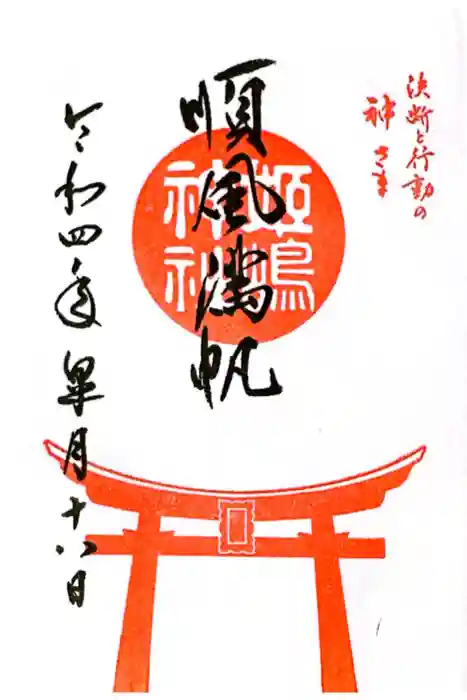 決断と行動の
神さま
順風満帆
姫嶋
神社
令和四年皐月十八日